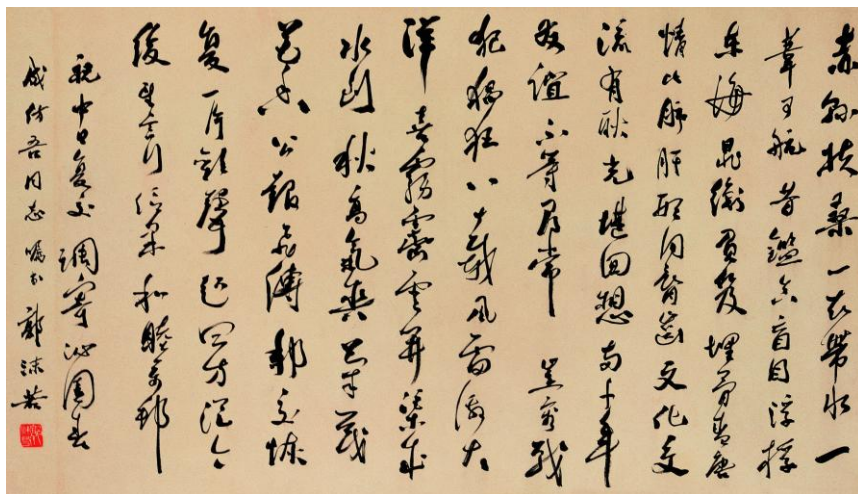 赤县扶桑一衣带水一
苇可航昔鉴真盲目浮桴
东海晁衡负笈埋骨盛唐
情比肺肝形同唇齿文化交
流有耿光堪回想两千年
友谊不等寻常 岂容战
犯猖狂八十载风雷激大
洋喜雾霁云开渠成
水到秋高气爽菊茂
花香公报飞传邦交恢
复一片欢声起四方从今
后望言行信果和睦万邦
祝中日复交调寄沁园春
成仿吾同志嘱书 郭沫若